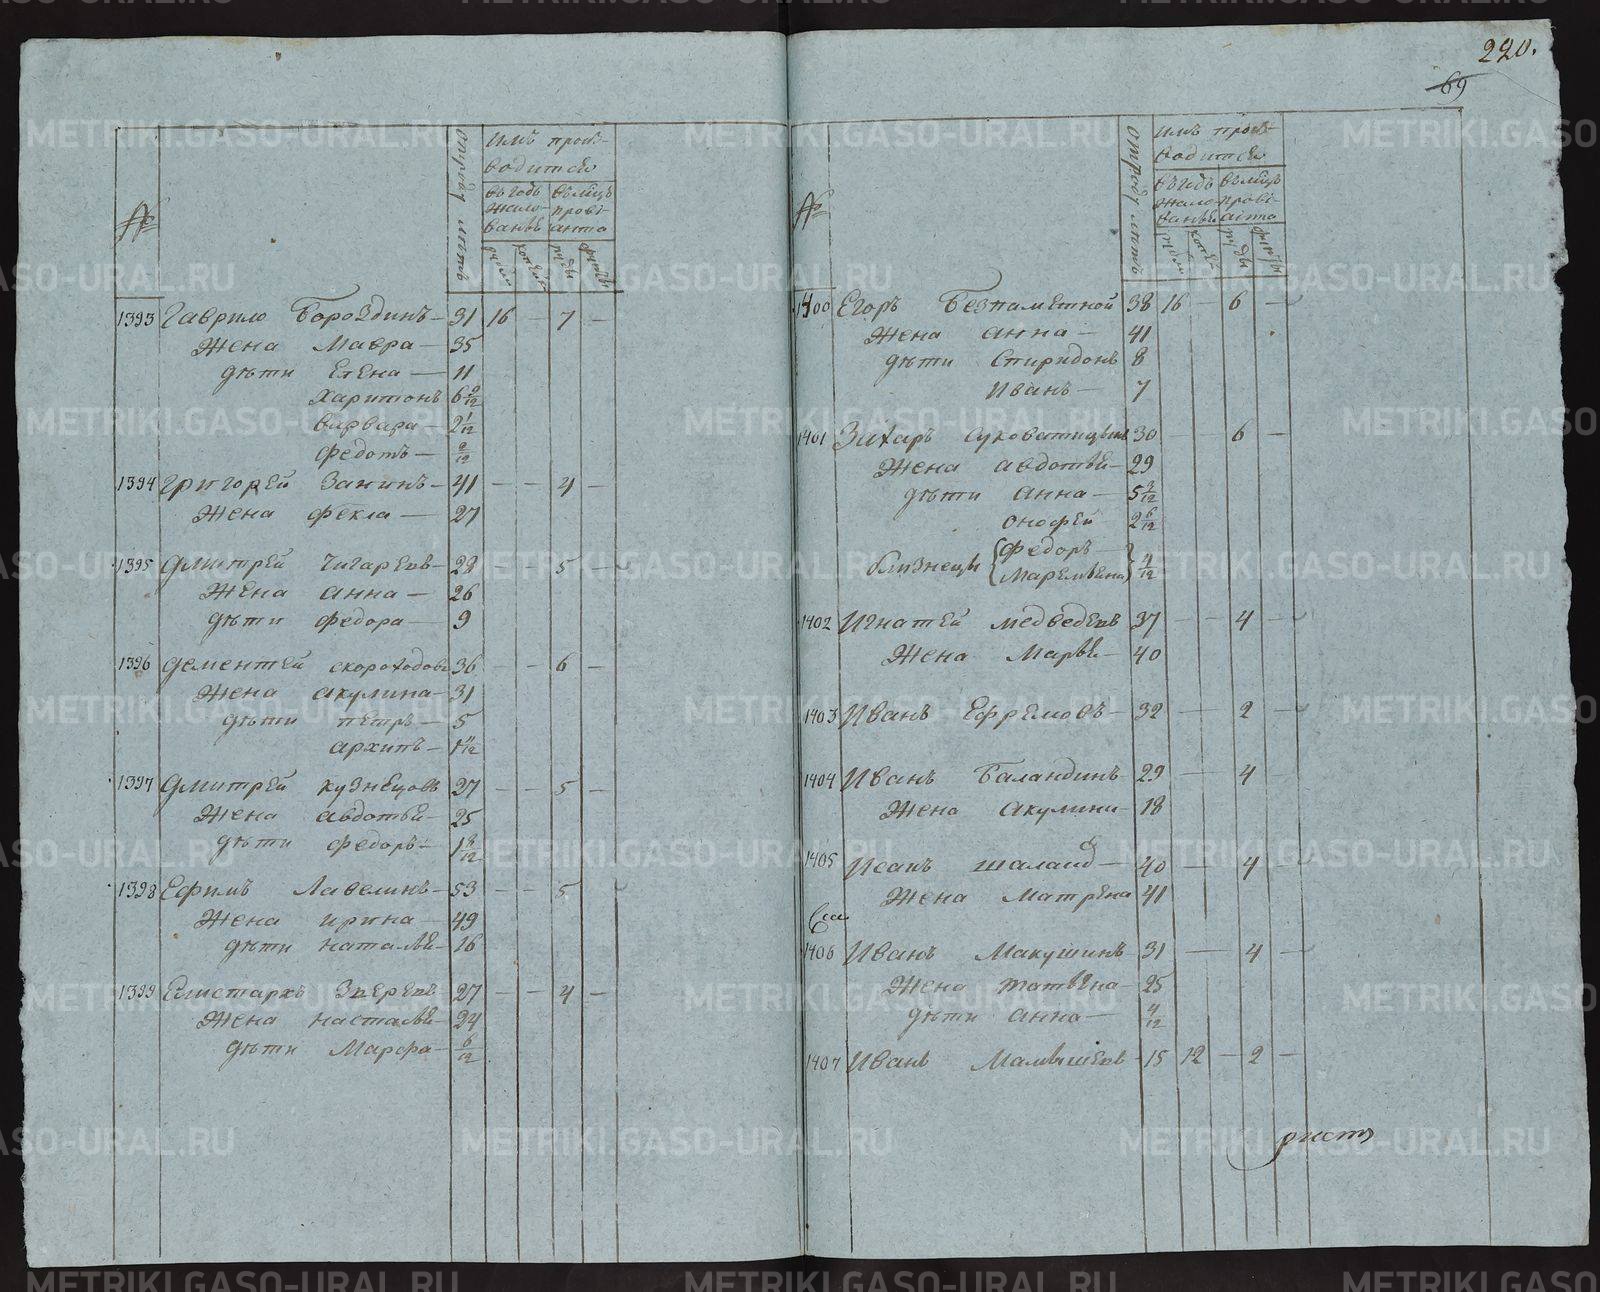 220.
69
№
отроду летъ
имъ произ-
водится
въ годъ
жало-
ванье
въ мѣцъ
прові-
анта
рубли
копей
пуды
фунты
1393 Гаврило Бороздинъ — 31 16 — 7 —
Жена Мавра — 35
дѣти Елена — 11
Харитонъ 6 9/12
Варвара — 2 1/12
Федотъ — 9/12
1394 Григорей Занинъ — 41 — — 4 —
Жена Фекла — 27
1395 Дмитрей Чигаревъ — 29 — — 5 —
Жена Анна — 26
дѣти Федора — 9
1396 Дементей Скороходовъ 36 — — 6 —
Жена Акулина — 31
дѣти Петръ — 5
Архипъ — 1 11/12
1397 Дмитрей Кузнецовъ 27 — — 5 —
Жена Авдотья — 25
дѣти Федоръ — 1 8/12
1398 Ефимъ Лавелинъ — 53 — — 5
Жена Ирина — 49
дѣти Наталья — 16
1399 Елистархъ Зверевъ 27 — — 4 —
Жена Насталья — 24
дѣти Марфа — 6/12
№
отроду летъ
имъ произ-
водится
въ годъ
жало-
ванье
въ мѣцъ
прові-
анта
рубли
копей
пуды
фунты
1400 Егоръ Безпаметной 38 16 — 6 —
Жена Анна — 41
дѣти Спиридонъ 8
Иванъ — 7
1401 Захаръ Суковатицынъ 30 — — 6 —
Жена Авдотья — 29
дѣти Анна — 5 3/12
Онофей 2 6/12
близнецы { Федоръ —
Маремьяна } 4/12
1402 Игнатей Медведевъ 37 — — 4 —
Жена Марья — 40
1403 Иванъ Ефремовъ — 32 — 2 —
1404 Иванъ Баландинъ 29 — 4
Жена Акулина — 18
1405 Исакъ Шалаид — 40 — 4 —
Жена Матрена 41
1406 Иванъ Макушинъ 31 — 4 —
Жена Татьяна — 25
дѣти Анна — 4/12
1407 Иванъ Малышевъ — 15 12 — 2 —
METRIKI.GASO-URAL.RU